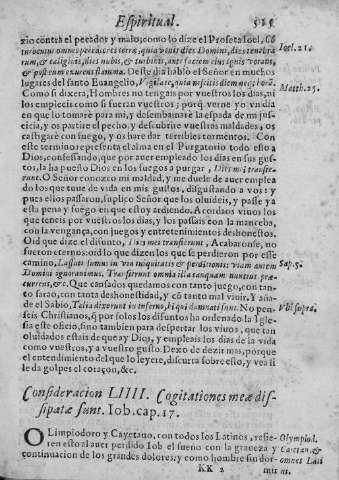 Espiritual. 515
zio contra el peccador y malo; como lo dize el Profeta Ioel, Cō
turbentur omnes peccatores terræ, quia venit dies Domini, dies tenebra
rum, & caliginis, dies nubis, & turbinis, ante faciem eius ignis vorans,
& post eum exurens flamma. Deste dia hablò el Señor en muchos
lugares del santo Euangelio, Vigilate, quia nescitis diem neq; horā.
Como si dixera, Hombres no tengais por vuestros los dias, ni
los empleeis como si fueran vuestros; porq̃ verne yo vn dia
en que lo tomarè para mi, y desembainarè la espada de mi jus
ticia, y os partirè el pecho, y descubrire vuestras maldades, os
castigarè con fuego, y os harè dar terribles tormentos. Con
este termino representa el alma en el Purgatorio todo esto a
Dios, confessando, que por auer empleado los dias en sus gus-
tos, la ha puesto Dios en los fuegos a purgar, Dies mei transie-
runt. O Señor conozco mi maldad, y me duele de auer emplea
do los que tuue de vida en mis gustos, disgustando a vos: y
pues ellos passaron, suplico Señor que los oluideis, y passe ya
esta pena y fuego en que estoy ardiendo. Acordaos viuos los
que teneis por vuestros los dias, y los passais con la manceba,
con la vengança, con juegos y entretenimientos deshonestos.
Oid que dize el difunto, Dies mei transierunt, Acabaronse, no
fueron eternos: ord lo que dizen los que se perdieron por esse
camino, Lassati sumus in via iniquitatis & perditionis: viam autem
Domini ignorauimus, Transierunt omnia illa tanquam nuntius præ-
currens, &c. Que cansados quedamos con tanto juego, con tan-
to sarao, con tanta deshonestidad, y cō tanto mal viuir. Y aña-
de el Sabio, Talia dixerunt in inferno, hi qui damnati sunt. No pen-
seis Christianos, q̃ por solos los difuntos ha ordenado la Igle
sia este oficio, sino tambien para despertar los viuos, que tan
oluidados estais de que ay Dios, y empleais los dias de la vida
como vuestros, y a vuestro gusto. Dexo de dezir mas, porque
el entendimiento del que lo leyere, discurra sobre esto, y vea si
le da golpes el coraçon, &c.
Consideracion LIIII. Cogitationes meæ dis-
sipatæ sunt. Iob. cap. 17.
OLimpiodoro y Cayetano, con todos los Latinos, refie-
ren esto al auer perdido Iob el sueño con la graueza y
continuacion de los grandes dolores; y como hombre sin dor-
KK 2 mir
Ioel. 21.
Matth. 25.
Sap. 5.
Vbi supra.
Olympiod.
Caietan. &
omnes Lati
ni.